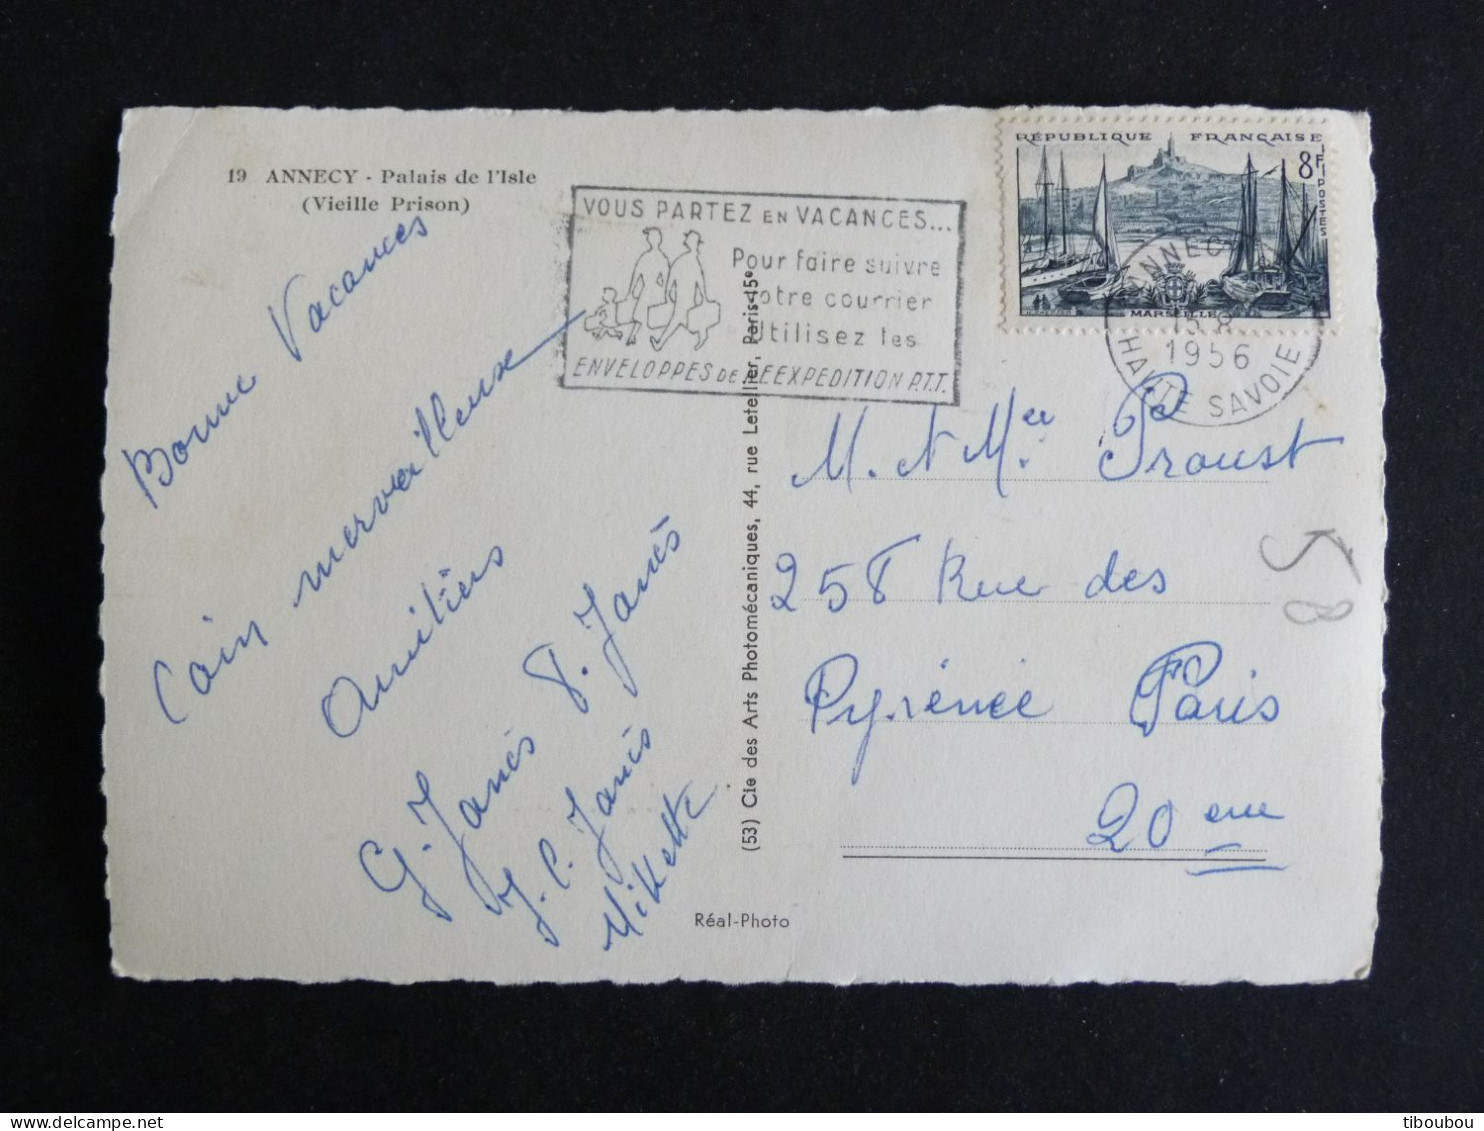 19 ANNECY - Palais de l'Isle
(Vieille Prison)
Bonne Vacances
Coin merveilleux
Amitiés
G. Janès P. Janès
J. C. Janès
Mikette
VOUS PARTEZ EN VACANCES...
Pour faire suivre
votre courrier
Utilisez les
ENVELOPPES DE REEXPEDITION P.T.T.
RÉPUBLIQUE FRANÇAISE
8F
POSTES
MARSEILLE
ANNECY
1956
HAUTE SAVOIE
(53) Cie des Arts Photomécaniques, 44, rue Letellier, Paris-15e
M. et Mee Proust
258 Rue des
Pyrénée Paris
20 eme
58
Réal-Photo
tiboubou